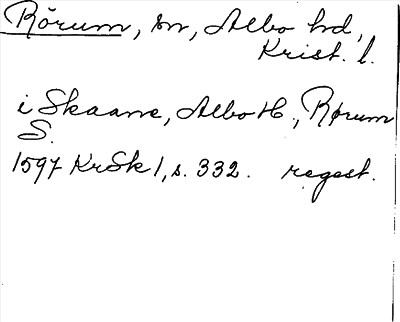 Rörum, sn, Albo hd,
Krist. l.
i Skaane, Albo H, Rørum
S.
1597 KrSk 1, s. 332. regest.